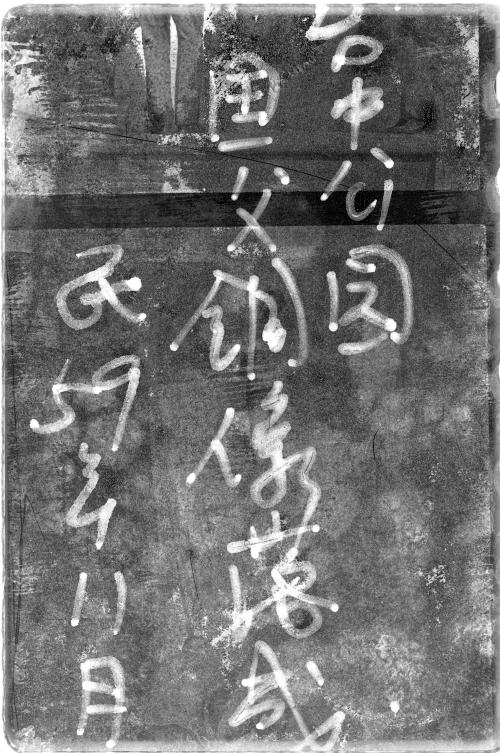 台中公园
国父銅像落成
民59年11月